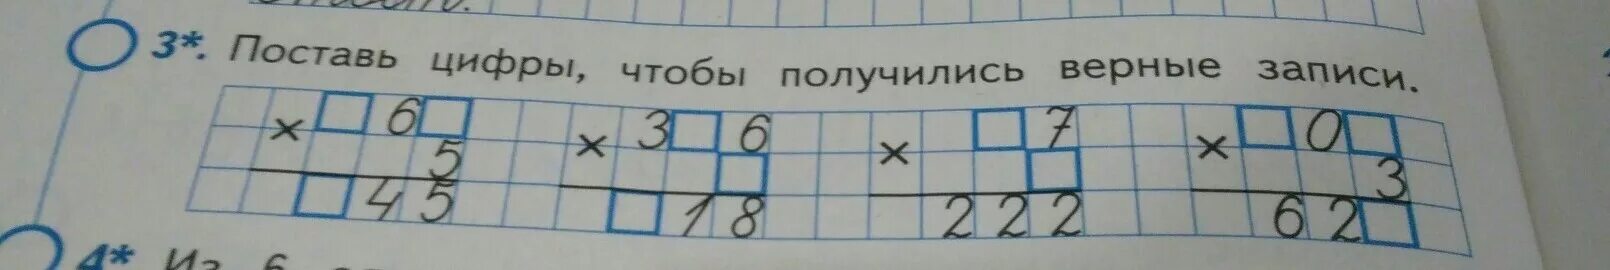 3*. Поставь цифры, чтобы получились верные записи.
× □6□ × 3□6 × □7 × □0□
5 □ □ 3
□45 □18 222 62□
4* Из 6